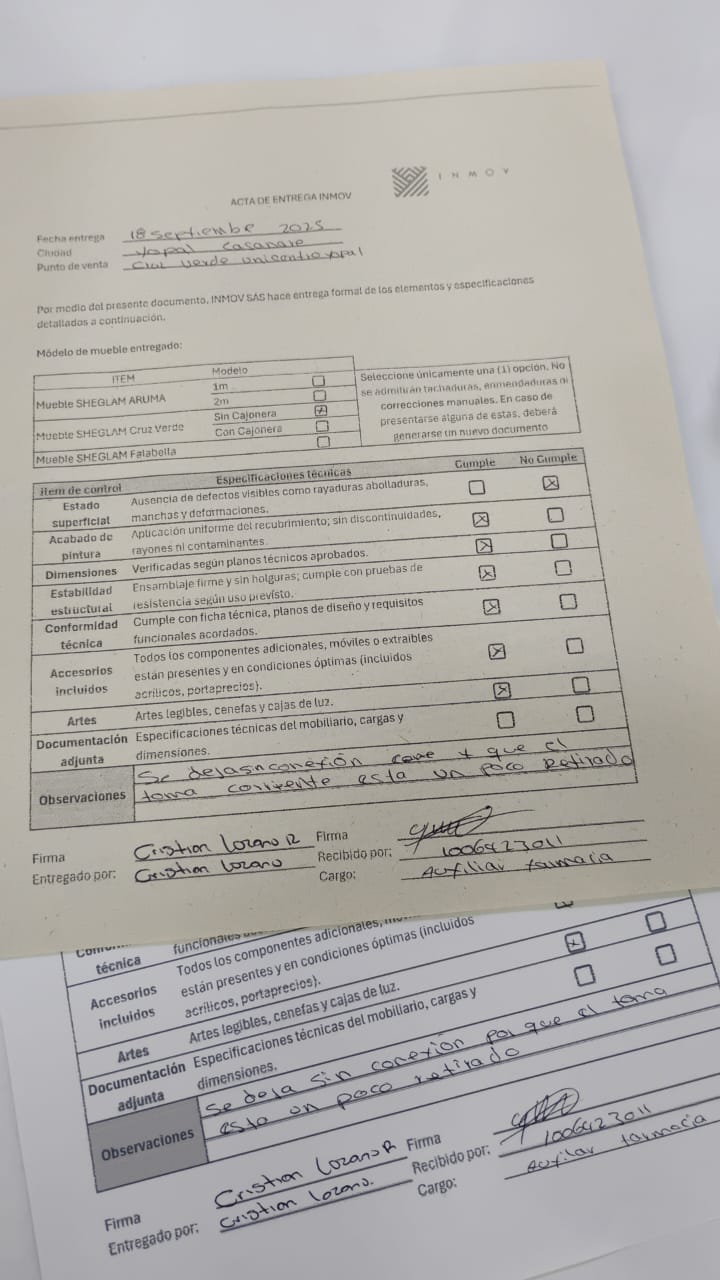 INMOV
ACTA DE ENTREGA INMOV
Fecha entrega 18 septiembre 2025
Ciudad Yopal Casanare
Punto de venta Cruz verde unicentro yopal
Por medio del presente documento, INMOV SAS hace entrega formal de los elementos y especificaciones
detallados a continuación.
Módelo de mueble entregado:
ITEM Modelo
Mueble SHEGLAM ARUMA 1m
2m
Mueble SHEGLAM Cruz Verde Sin Cajonera
Con Cajonera
Mueble SHEGLAM Falabella
Seleccione únicamente una (1) opción. No
se admitirán tachaduras, enmendaduras ni
correcciones manuales. En caso de
presentarse alguna de estas, deberá
generarse un nuevo documento
ítem de control Especificaciones técnicas Cumple No Cumple
Estado superficial Ausencia de defectos visibles como rayaduras abolladuras,
manchas y deformaciones.
Acabado de pintura Aplicación uniforme del recubrimiento; sin discontinuidades,
rayones ni contaminantes.
Dimensiones Verificadas según planos técnicos aprobados.
Estabilidad estructural Ensamblaje firme y sin holguras; cumple con pruebas de
resistencia según uso previsto.
Conformidad técnica Cumple con ficha técnica, planos de diseño y requisitos
funcionales acordados.
Accesorios incluidos Todos los componentes adicionales, móviles o extraibles
están presentes y en condiciones óptimas (incluidos
acrílicos, portaprecios).
Artes Artes legibles, cenefas y cajas de luz.
Documentación adjunta Especificaciones técnicas del mobiliario, cargas y
dimensiones.
Observaciones Se deja sin conexión que el
toma corriente esta un poco Retirado
Firma Cristian Lozano R Firma
Entregado por: Cristian Lozano Recibido por: 1006423011
Cargo: Auxiliar farmacia
técnica funcionales
Accesorios incluidos Todos los componentes adicionales,
están presentes y en condiciones óptimas (incluidos
acrílicos, portaprecios).
Artes Artes legibles, cenefas y cajas de luz.
Documentación adjunta Especificaciones técnicas del mobiliario, cargas y
dimensiones.
Observaciones Se deja sin conexión por que el toma
esta un poco retirado
Firma Cristian Lozano R Firma
Entregado por: Cristian Lozano. Recibido por: 1006423011
Cargo: Auxiliar farmacia